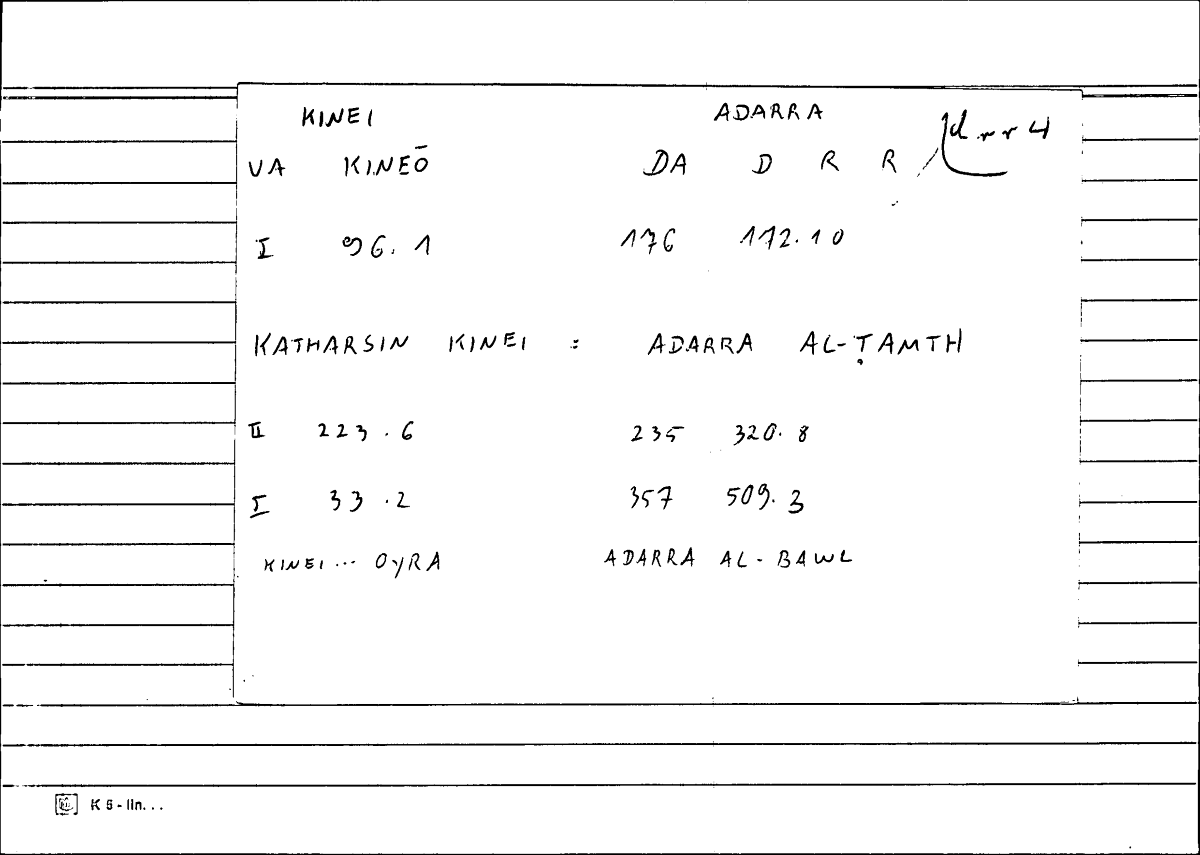 KINEI ADARRA
VA KINEŌ DA D R R / drr 4
I 96.1 176 172.10
KATHARSIN KINEI : ADARRA AL-ṬAMTH
II 223.6 235 320.8
I 33.2 357 509.3
KINEI ... OYRA ADARRA AL-BAWL
K 5 - lin...